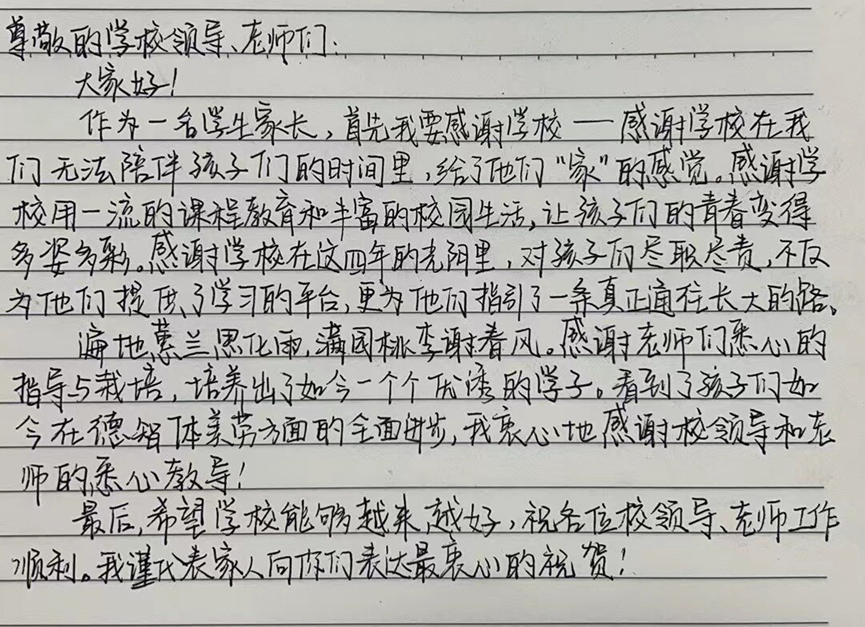 尊敬的学校领导、老师们:
大家好!
作为一名学生家长,首先我要感谢学校一感谢学校在我
们无法陪伴孩子们的时间里,给了他们“家”的感觉。感谢学
校用一流的课程教育和丰富的校园生活,让孩子们的青春变得
多姿多彩。感谢学校在这四年的光阴里,对孩子们尽职尽责,不仅
为他们提供了学习的平台,更为他们指引了一条真正通往长大的路。
遍地蕙兰思化雨,满园桃李谢春风。感谢老师们悉心的
指导与栽培,培养出了如今一个个优秀的学子。看到了孩子们如
今在德智体美劳方面的全面进步,我衷心地感谢校领导和老
师的悉心教导!
最后,希望学校能够越来越好,祝各位校领导、老师工作
顺利。我谨代表家人向你们表达最衷心的祝贺!